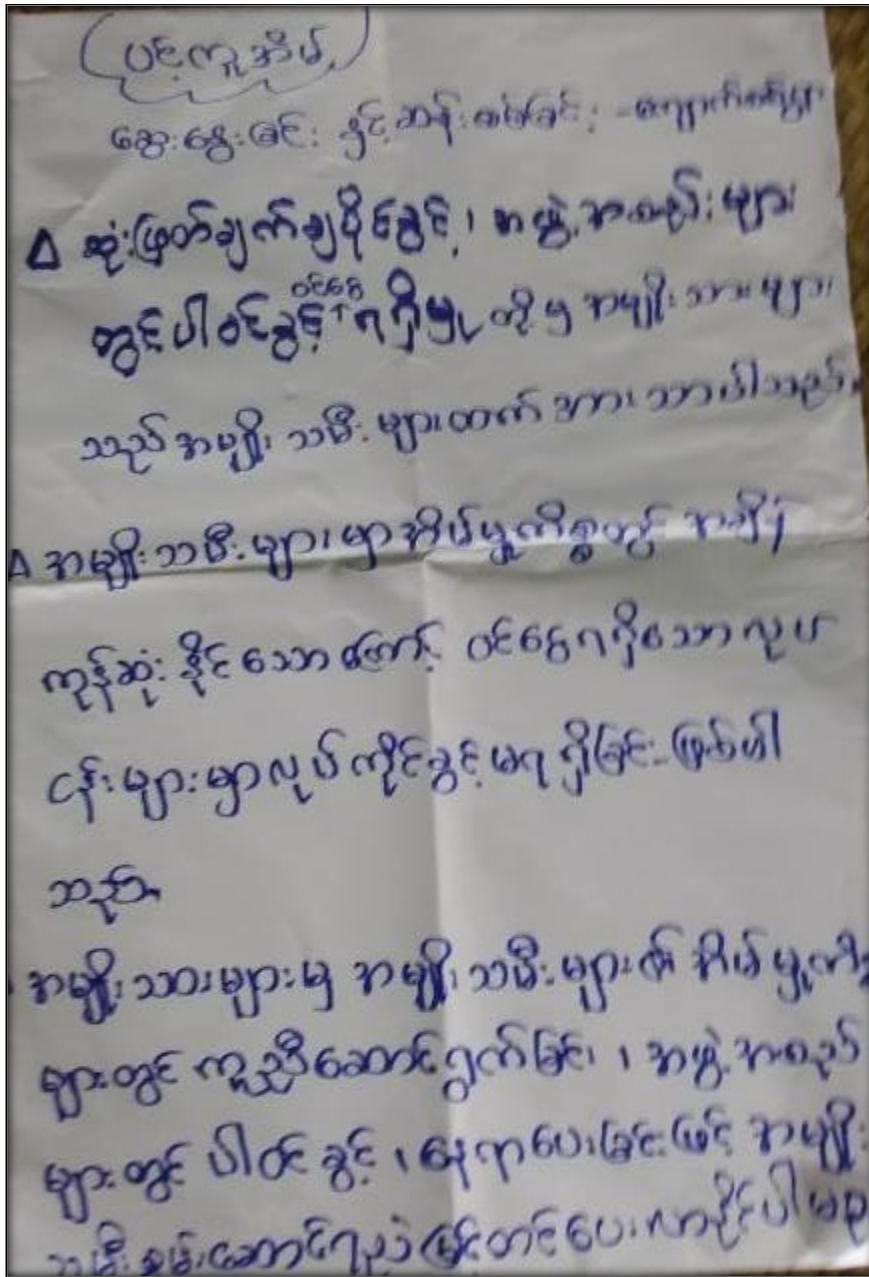 (ပင့်ကူအိမ်)
ဆွေးနွေးခြင်း နှင့် ဆန်းစစ်ခြင်း -ကျောက်စစ်ရွာ
Δ ဆုံးဖြတ်ချက်ချပိုင်ခွင့်၊ အဖွဲ့အစည်းများ
ဝင်ငွေ
တွင် ပါဝင်ခွင့် ↑ ရရှိမှု တို့မှ အမျိုးသားများ
သည် အမျိုးသမီးများထက် အားသာပါသည်။
Δ အမျိုးသမီးများမှာ အိမ်မှုကိစ္စတွင် အချိန်
ကုန်ဆုံးနိုင်သောကြောင့် ဝင်ငွေရရှိသော လုပ်
ငန်းများမှာ လုပ်ကိုင်ခွင့် မရရှိခြင်း ဖြစ်ပါ
သည်။
အမျိုးသားများမှ အမျိုးသမီးများ၏ အိမ်မှုကိ
များတွင် ကူညီဆောင်ရွက်ခြင်း၊ အဖွဲ့အစည်း
များတွင် ပါဝင်ခွင့်၊ နေရာပေးခြင်းဖြင့် အမျိုး
သမီးစွမ်းဆောင်ရည် မြှင့်တင်ပေးလာနိုင်ပါမည